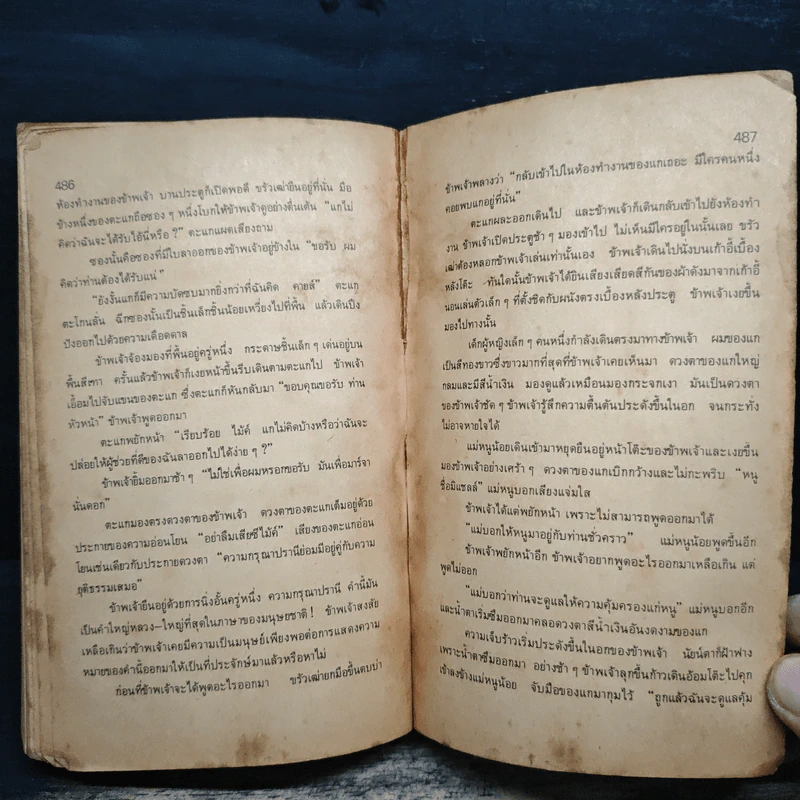 486
ห้องทำงานของข้าพเจ้า บานประตูก็เปิดพอดี ขรัวเฒ่ายืนอยู่ที่นั่น มือ
ข้างหนึ่งของตะแกถือซอง ๆ หนึ่งโบกให้ข้าพเจ้าดูอย่างตื่นเต้น “แกไม่
คิดว่าฉันจะได้รับไอ้นี่หรือ ?” ตะแกแผดเสียงถาม
ซองนั้นคือซองที่มีใบลาออกของข้าพเจ้าอยู่ข้างใน “ขอรับ ผม
คิดว่าท่านต้องได้รับแน่”
“ยังงั้นแกก็มีความบัดซบมากยิ่งกว่าที่ฉันคิด คายส์” ตะแก
ตะโกนลั่น ฉีกซองนั้นเป็นชิ้นเล็กชิ้นน้อยเหวี่ยงไปที่พื้น แล้วเดินปึง
ปังออกไปด้วยความเดือดดาล
ข้าพเจ้าจ้องมองที่พื้นอยู่ครู่หนึ่ง กระดาษชิ้นเล็ก ๆ เด่นอยู่บน
พื้นสีเทา ครั้นแล้วข้าพเจ้าก็เงยหน้าขึ้นรีบเดินตามตะแกไป ข้าพเจ้า
เอื้อมไปจับแขนของตะแก ซึ่งตะแกก็หันกลับมา “ขอบคุณขอรับ ท่าน
หัวหน้า” ข้าพเจ้าพูดออกมา
ตะแกพยักหน้า “เรียบร้อย ไม้ค์ แกไม่คิดบ้างหรือว่าฉันจะ
ปล่อยให้ผู้ช่วยที่ดีของฉันลาออกไปได้ง่าย ๆ ?”
ข้าพเจ้ายิ้มออกมาช้า ๆ “ไม่ใช่เพื่อผมหรอกขอรับ มันเพื่อมาร์จา
นั่นดอก”
ตะแกมองตรงดวงตาของข้าพเจ้า ดวงตาของตะแกเต็มอยู่ด้วย
ประกายของความอ่อนโยน “อย่าลืมเสียซีไม้ค์” เสียงของตะแกอ่อน
โยนเช่นเดียวกับประกายดวงตา “ความกรุณาปรานีย่อมมีอยู่คู่กับความ
ยุติธรรมเสมอ”
ข้าพเจ้ายืนอยู่ด้วยการนิ่งอั้นครู่หนึ่ง ความกรุณาปรานี คำนี้มัน
เป็นคำใหญ่หลวง—ใหญ่ที่สุดในภาษาของมนุษยชาติ ! ข้าพเจ้าสงสัย
เหลือเกินว่าข้าพเจ้าเคยมีความเป็นมนุษย์เพียงพอต่อการแสดงความ
หมายของคำนี้ออกมาให้เป็นที่ประจักษ์มาแล้วหรือหาไม่
ก่อนที่ข้าพเจ้าจะได้พูดอะไรออกมา ขรัวเฒ่ายกมือขึ้นตบบ่า
487
ข้าพเจ้าพลางว่า “กลับเข้าไปในห้องทำงานของแกเถอะ มีใครคนหนึ่ง
คอยพบแกอยู่ที่นั่น”
ตะแกผละออกเดินไป และข้าพเจ้าก็เดินกลับเข้าไปยังห้องทำ
งาน ข้าพเจ้าเปิดประตูช้า ๆ มองเข้าไป ไม่เห็นมีใครอยู่ในนั้นเลย ขรัว
เฒ่าต้องหลอกข้าพเจ้าเล่นเท่านั้นเอง ข้าพเจ้าเดินไปนั่งบนเก้าอี้เบื้อง
หลังโต๊ะ ทันใดนั้นข้าพเจ้าได้ยินเสียงเสียดสีกันของผ้าดังมาจากเก้าอี้
นอนเล่นตัวเล็ก ๆ ที่ตั้งชิดกับผนังตรงเบื้องหลังประตู ข้าพเจ้าเงยขึ้น
มองไปทางนั้น
เด็กผู้หญิงเล็ก ๆ คนหนึ่งกำลังเดินตรงมาทางข้าพเจ้า ผมของแก
เป็นสีทองขาวซึ่งขาวมากที่สุดที่ข้าพเจ้าเคยเห็นมา ดวงตาของแกใหญ่
กลมและมีสีน้ำเงิน มองดูแล้วเหมือนมองกระจกเงา มันเป็นดวงตา
ของข้าพเจ้าชัด ๆ ข้าพเจ้ารู้สึกความตื้นตันประดังขึ้นในอก จนกระทั่ง
ไม่อาจหายใจได้
แม่หนูน้อยเดินเข้ามาหยุดยืนอยู่หน้าโต๊ะของข้าพเจ้าและเงยขึ้น
มองข้าพเจ้าอย่างเศร้า ๆ ดวงตาของแกเบิกกว้างและไม่กะพริบ “หนู
ชื่อมิแชลล์” แม่หนูบอกเสียงแจ่มใส
ข้าพเจ้าได้แต่พยักหน้า เพราะไม่สามารถพูดออกมาได้
“แม่บอกให้หนูมาอยู่กับท่านชั่วคราว” แม่หนูน้อยพูดขึ้นอีก
ข้าพเจ้าพยักหน้าอีก ข้าพเจ้าอยากพูดอะไรออกมาเหลือเกิน แต่
พูดไม่ออก
“แม่บอกว่าท่านจะดูแลให้ความคุ้มครองแก่หนู” แม่หนูบอกอีก
และน้ำตาเริ่มซึมออกมาคลอดวงตาสีน้ำเงินอันงดงามของแก
ความเจ็บร้าวเริ่มประดังขึ้นในอกของข้าพเจ้า นัยน์ตาก็ฝ้าฟาง
เพราะน้ำตาซึมออกมา อย่างช้า ๆ ข้าพเจ้าลุกขึ้นก้าวเดินอ้อมโต๊ะไปคุก
เข่าลงข้างแม่หนูน้อย จับมือของแกมากุมไว้ “ถูกแล้วฉันจะดูแลคุ้ม